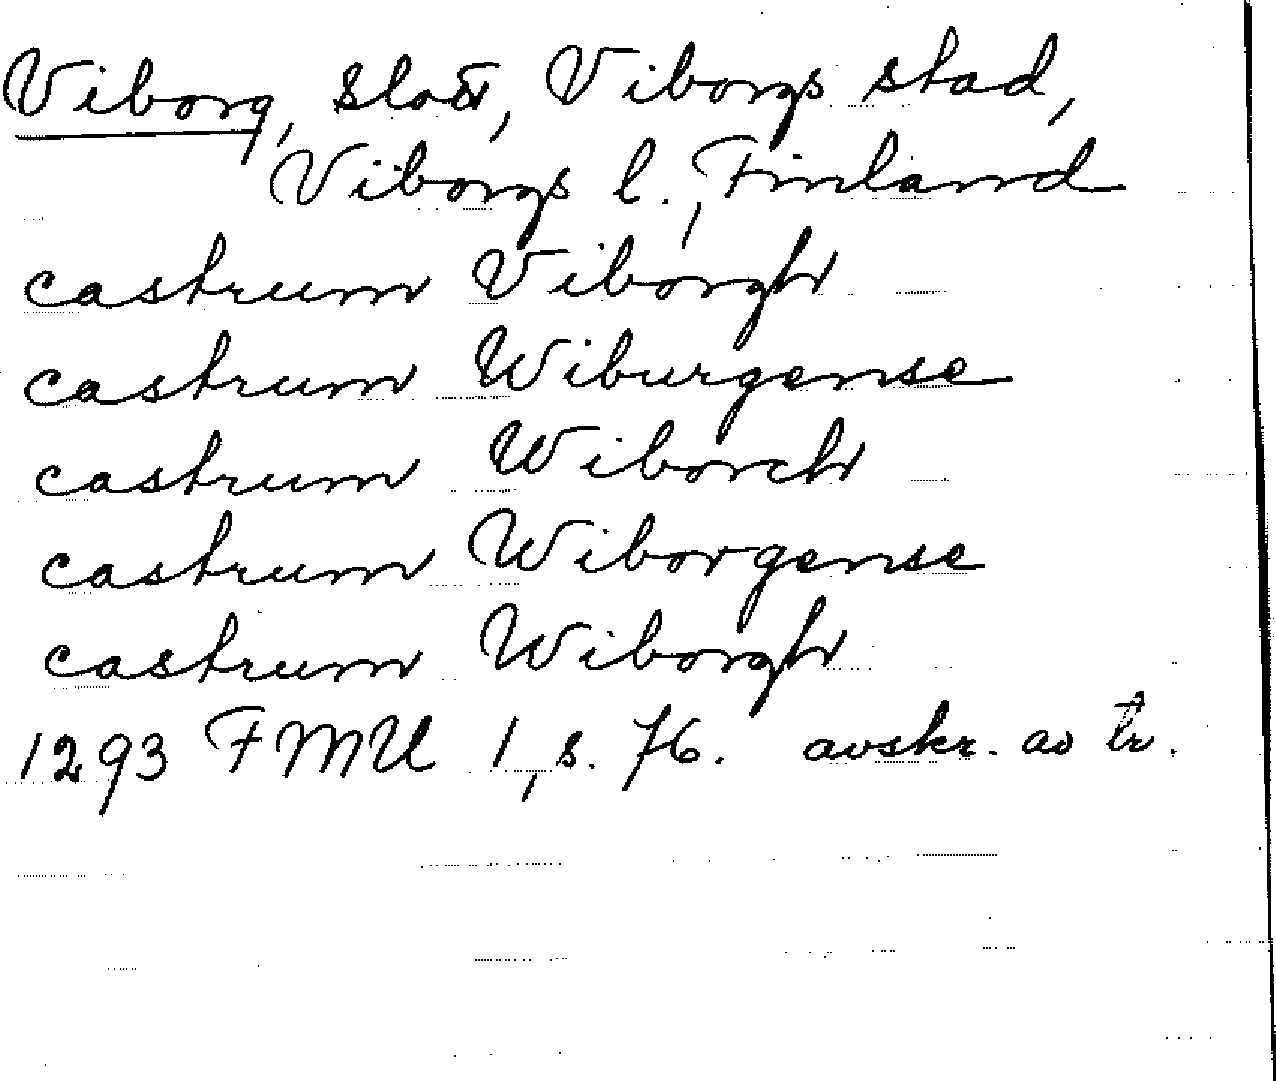 Viborg, slott, Viborgs stad,
Viborgs l., Finland
castrum Viborgh
castrum Wiburgense
castrum Wiborch
castrum Wiborgense
castrum Wiborgh
1293 FMU 1, s. 76. avskr. av tr.